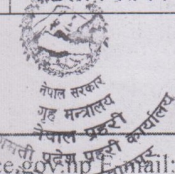 नेपाल सरकार
गृह मन्त्रालय
नेपाल प्रहरी
प्रदेश प्रहरी कार्यालय
ce.gov.np Email: